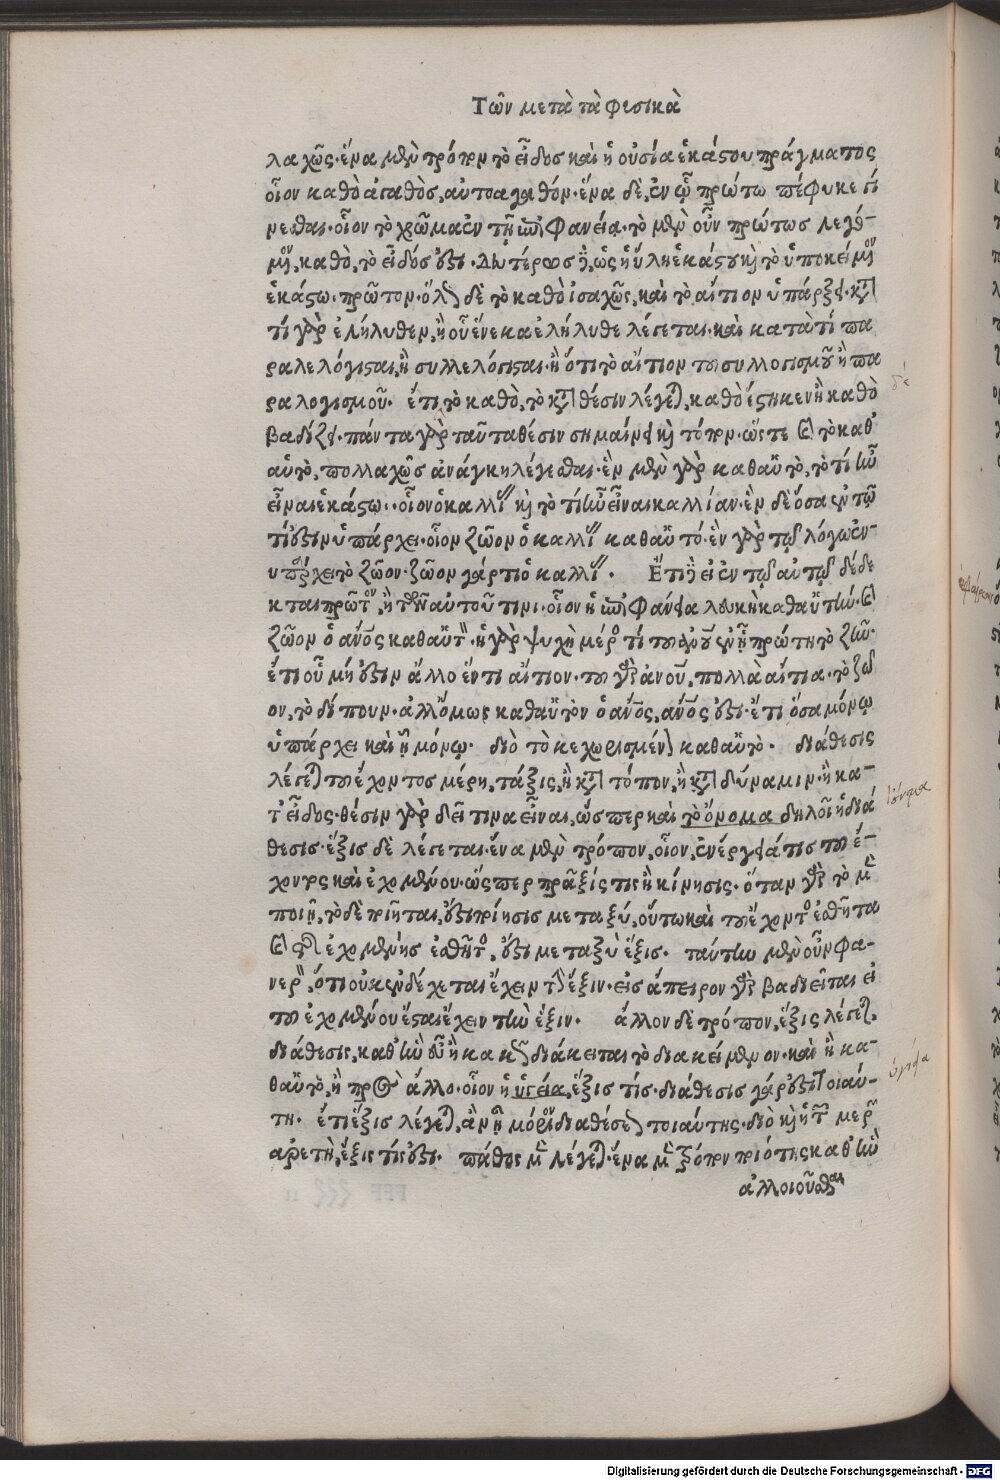 Τῶν μετὰ τὰ φυσικὰ
λαχῶς· ἕνα μὲν τρόπον τὸ εἶδος καὶ ἡ οὐσία ἑκάστου πράγματος
οἷον καθὸ ἀγαθὸς, αὐτοαγαθόν· ἕνα δὲ, ἐν ᾧ πρώτω πέφυκε γί
νεσθαι· οἷον τὸ χρῶμα ἐν τῇ ἐπιφανείᾳ· τὸ μὲν οὖν πρώτως λεγό-
μενον, καθὸ, τὸ εἶδός ἐστι· δευτέρως δὲ, ὡς ἡ ὕλη ἑκάστου καὶ τὸ ὑποκείμενον
ἑκάστω· πρῶτον· ὅλως δὲ τὸ καθὸ ἰσαχῶς, καὶ τὸ αἴτιον ὑπάρξει· κατὰ
τί γὰρ ἐλήλυθεν, ἢ οὗ ἕνεκα ἐλήλυθε λέγεται· καὶ κατὰ τί πα
ραλελόγισται, ἢ συλλελόγισται· ἢ ὅτι τὸ αἴτιον τοῦ συλλογισμοῦ ἢ πα
ραλογισμοῦ. ἔτι τὸ καθὸ, τὸ κατὰ θέσιν λέγεται, καθὸ ἕστηκεν ἢ καθὸ
βαδίζει· πάντα γὰρ ταῦτα θέσιν σημαίνει καὶ τόπον· ὥστε καὶ τὸ καθ'
αὑτὸ, πολλαχῶς ἀνάγκη λέγεσθαι· ἓν μὲν γὰρ καθαὑτὸ, τὸ τί ἦν
εἶναι ἑκάστω· οἷον ὁ καλλίας καὶ τὸ τί ἦν εἶναι καλλίαν· ἓν δὲ ὅσα ἐν τῷ
τί ἐστιν ὑπάρχει· οἷον ζῶον ὁ καλλίας καθαὑτό· ἐν γὰρ τῷ λόγω ἐν-
υπάρχει τὸ ζῶον· ζῶον γάρ τι ὁ καλλίας. Ἔτι δὲ εἰ ἐν τῷ αὐτῷ δέδε
κται πρώτου, ἢ τῶν αὐτοῦ τινι· οἷον ἡ ἐπιφάνεια λευκὴ καθαὑτήν· καὶ
ζῶον ὁ ἄνθρωπος καθαὑτόν· ἡ γὰρ ψυχὴ μέρος τί τοῦ ἀνθρώπου ἐν ᾗ πρώτη τὸ ζῆν·
ἔτι οὗ μή ἐστιν ἄλλο ἔντι αἴτιον· τοῦ γὰρ ἀνθρώπου, πολλὰ αἴτια· τὸ ζῷ
ον, τὸ δίπουν· ἀλλ' ὅμως καθαὑτὸν ὁ ἄνθρωπος, ἄνθρωπος ἐστι· ἔτι ὅσα μόνῳ
ὑπάρχει καὶ ᾗ μόνῳ. διὸ τὸ κεχωρισμένον καθαὑτό. διάθεσις
λέγεται τοῦ ἔχοντος μέρη, τάξις, ἢ κατὰ τόπον, ἢ κατὰ δύναμιν· ἢ κα-
τ' εἶδος· θέσιν γὰρ δεῖ τινα εἶναι, ὥσπερ καὶ τὸ ὄνομα δηλοῖ ἡ διά
θεσις· ἕξις δὲ λέγεται· ἕνα μὲν τρόπον, οἷον, ἐνέργειά τις τοῦ ἔ-
χοντος καὶ ἐχομένου· ὥσπερ πρᾶξίς τις ἢ κίνησις· ὅταν γὰρ τὸ μὲν
ποιῇ, τὸ δὲ ποιῆται, ἐστι ποίησις μεταξύ, οὕτω καὶ τοῦ ἔχοντος ἐσθῆτα
καὶ τῆς ἐχομένης ἐσθῆτος, ἐστι μεταξὺ ἕξις. ταύτην μὲν οὖν φα-
νερὸν, ὅτι οὐκ ἐνδέχεται ἔχειν τὴν ἕξιν· εἰς ἄπειρον γὰρ βαδιεῖται εἰ
τοῦ ἐχομένου ἔσται ἔχειν τὴν ἕξιν. ἄλλον δὲ τρόπον, ἕξις λέγεται,
διάθεσις, καθ' ἣν εὖ ἢ κακῶς διάκειται τὸ διακείμενον· καὶ ἢ κα-
θαὑτὸ, ἢ πρὸς ἄλλο· οἷον ἡ ὑγεία, ἕξις τίς· διάθεσις γάρ ἐστι τοιαύ-
τη. ἔτι ἕξις λέγεται, ἂν ᾖ μόριον διαθέσεως τοιαύτης· διὸ καὶ ἡ τῶν μερῶν
ἀρετὴ, ἕξις τίς ἐστι. πάθος μὲν λέγεται· ἕνα μὲν τρόπον ποιότης καθ' ἣν
ἀλλοιοῦσθαι
Digitalisierung gefördert durch die Deutsche Forschungsgemeinschaft - DFG